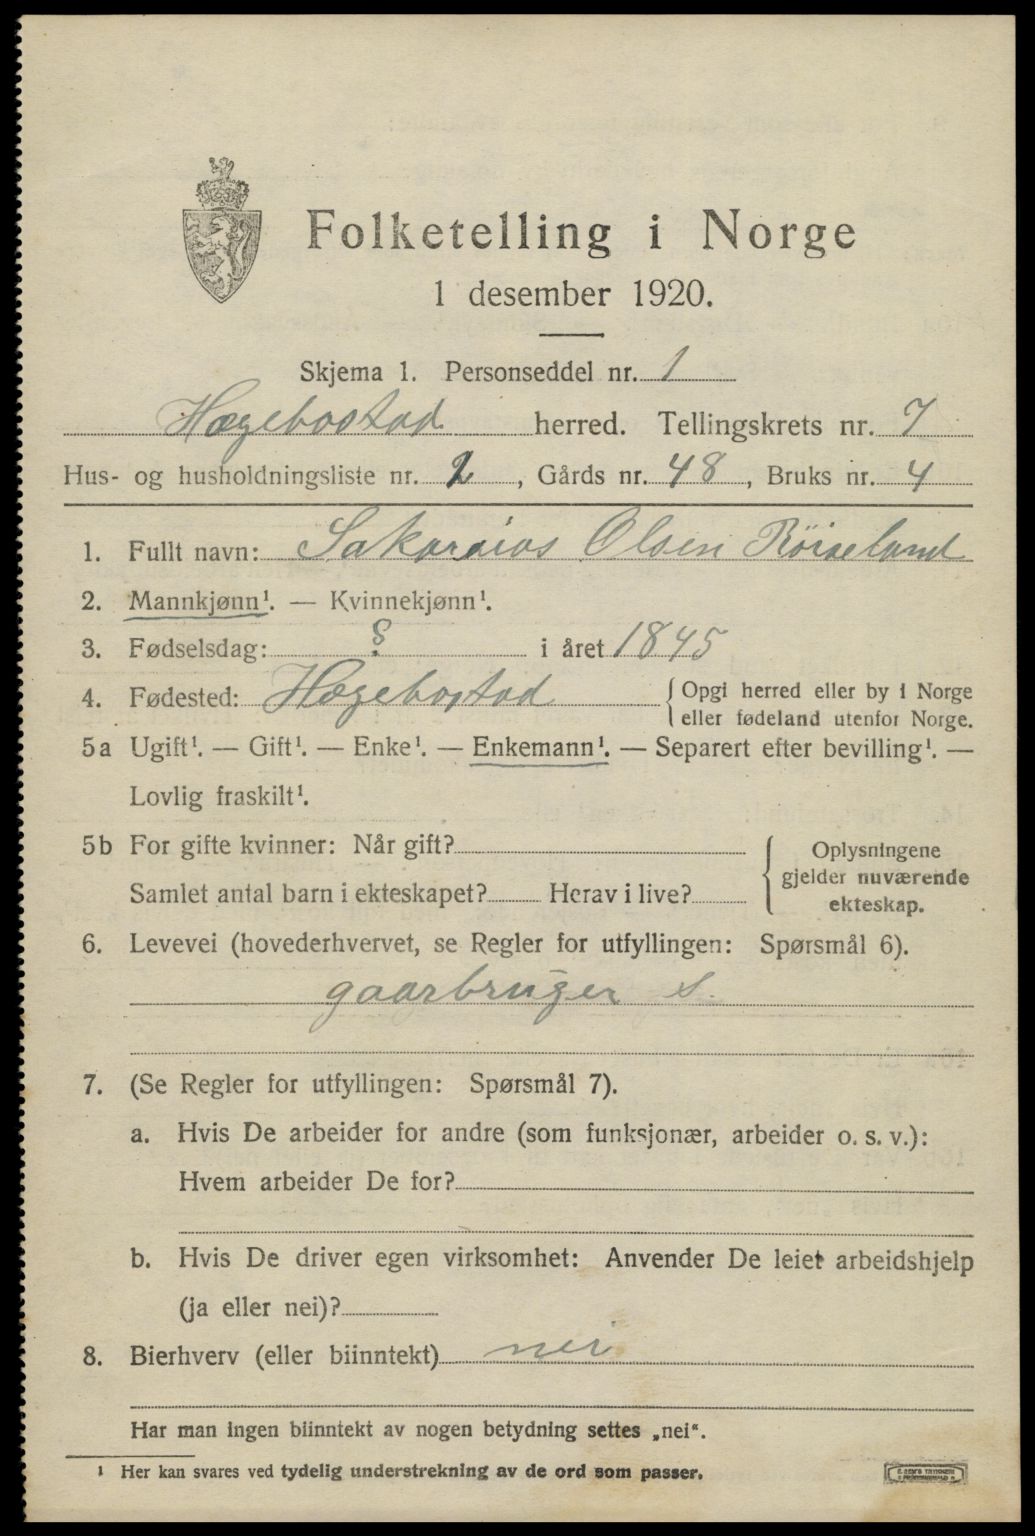 Folketelling i Norge
1 desember 1920.
Skjema 1. Personseddel nr. 1
Hægebostad herred. Tellingskrets nr. 7
Hus- og husholdningsliste nr. 2, Gårds nr. 48, Bruks nr. 4
1. Fullt navn: Sakarias Olsen Röiseland
2. Mannkjønn¹. — Kvinnekjønn¹.
3. Fødselsdag: ? i året 1845
4. Fødested: Hægebostad { Opgi herred eller by i Norge
eller fødeland utenfor Norge.
5a Ugift¹. — Gift¹. — Enke¹. — Enkemann¹. — Separert efter bevilling¹. —
Lovlig fraskilt¹.
5b For gifte kvinner: Når gift?
Samlet antal barn i ekteskapet? Herav i live?
{ Oplysningene
gjelder nuværende
ekteskap.
6. Levevei (hovederhvervet, se Regler for utfyllingen: Spørsmål 6).
gaarbruger s.
7. (Se Regler for utfyllingen: Spørsmål 7).
a. Hvis De arbeider for andre (som funksjonær, arbeider o. s. v.):
Hvem arbeider De for?
b. Hvis De driver egen virksomhet: Anvender De leiet arbeidshjelp
(ja eller nei)?
8. Bierhverv (eller biinntekt) nei
Har man ingen biinntekt av nogen betydning settes „nei“.
¹ Her kan svares ved tydelig understrekning av de ord som passer.